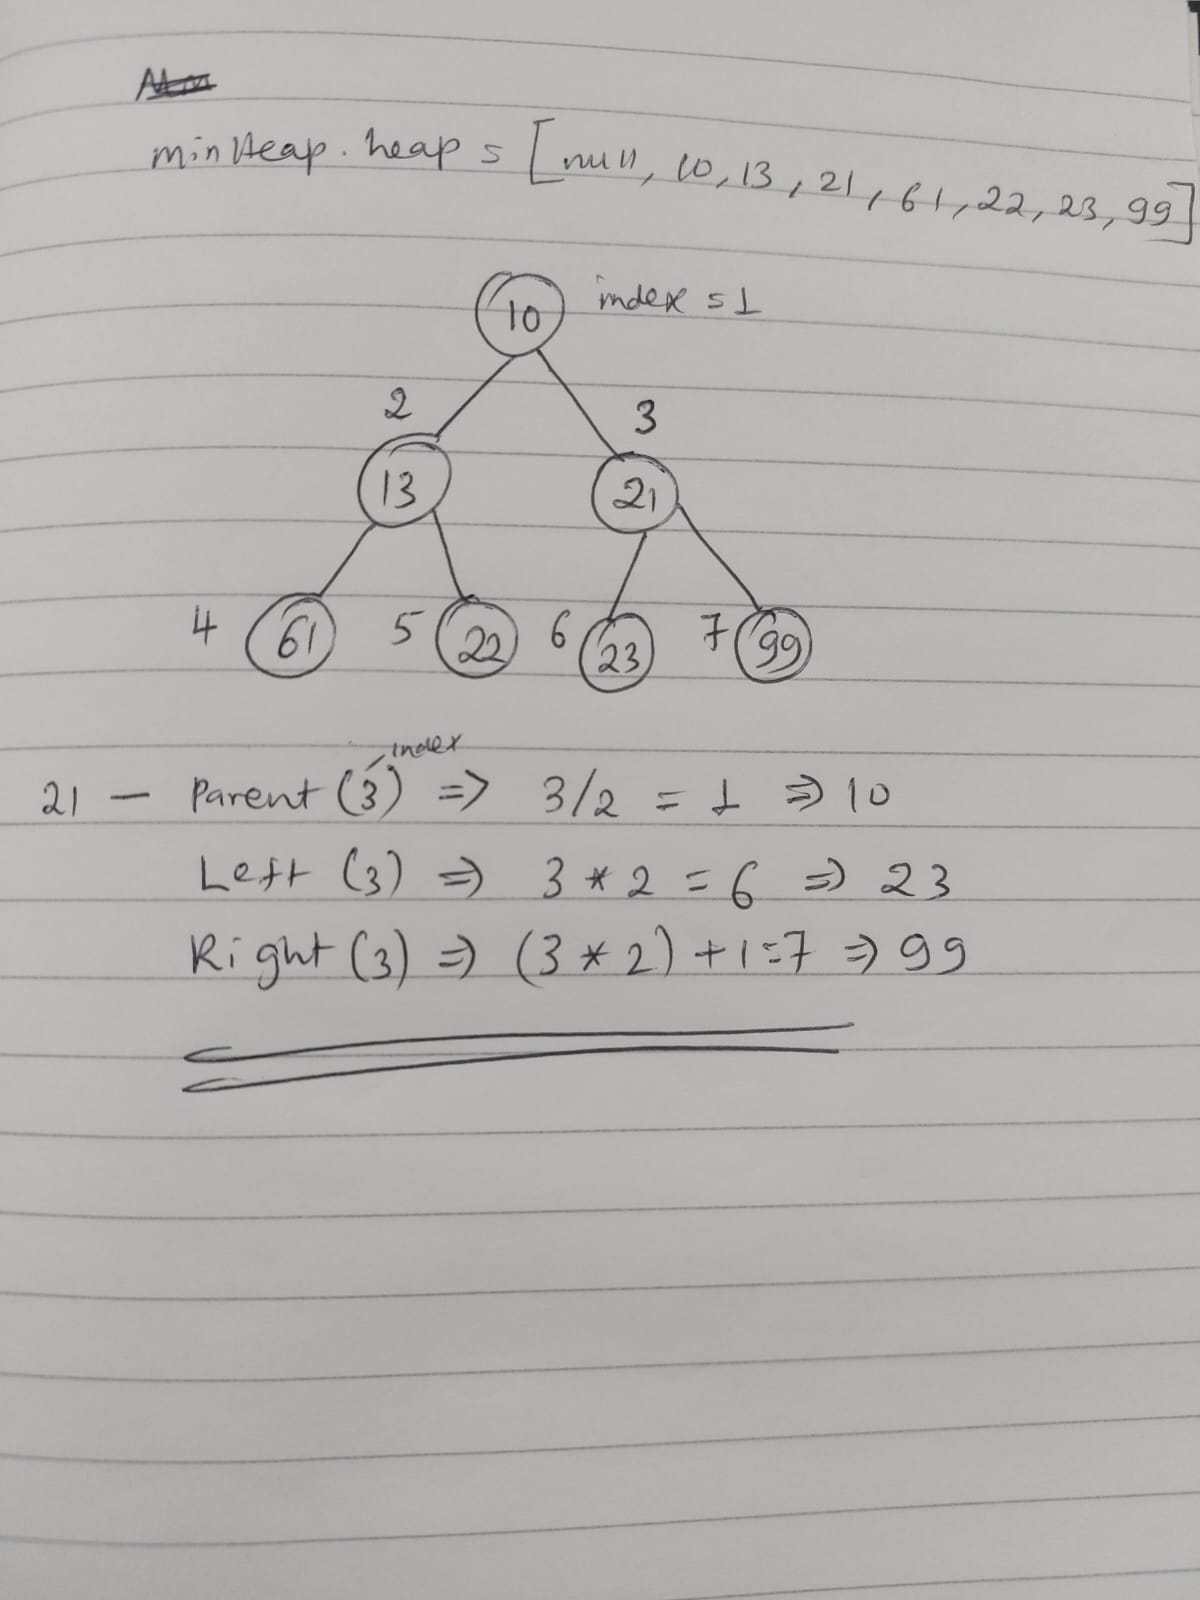 minHeap.heap = [null, 10, 13, 21, 61, 22, 23, 99]
10 index = 1
2 3
13 21
4 61 5 22 6 23 7 99
index
21 - Parent (3) => 3/2 = 1 => 10
Left (3) => 3 * 2 = 6 => 23
Right (3) => (3 * 2) + 1 = 7 => 99